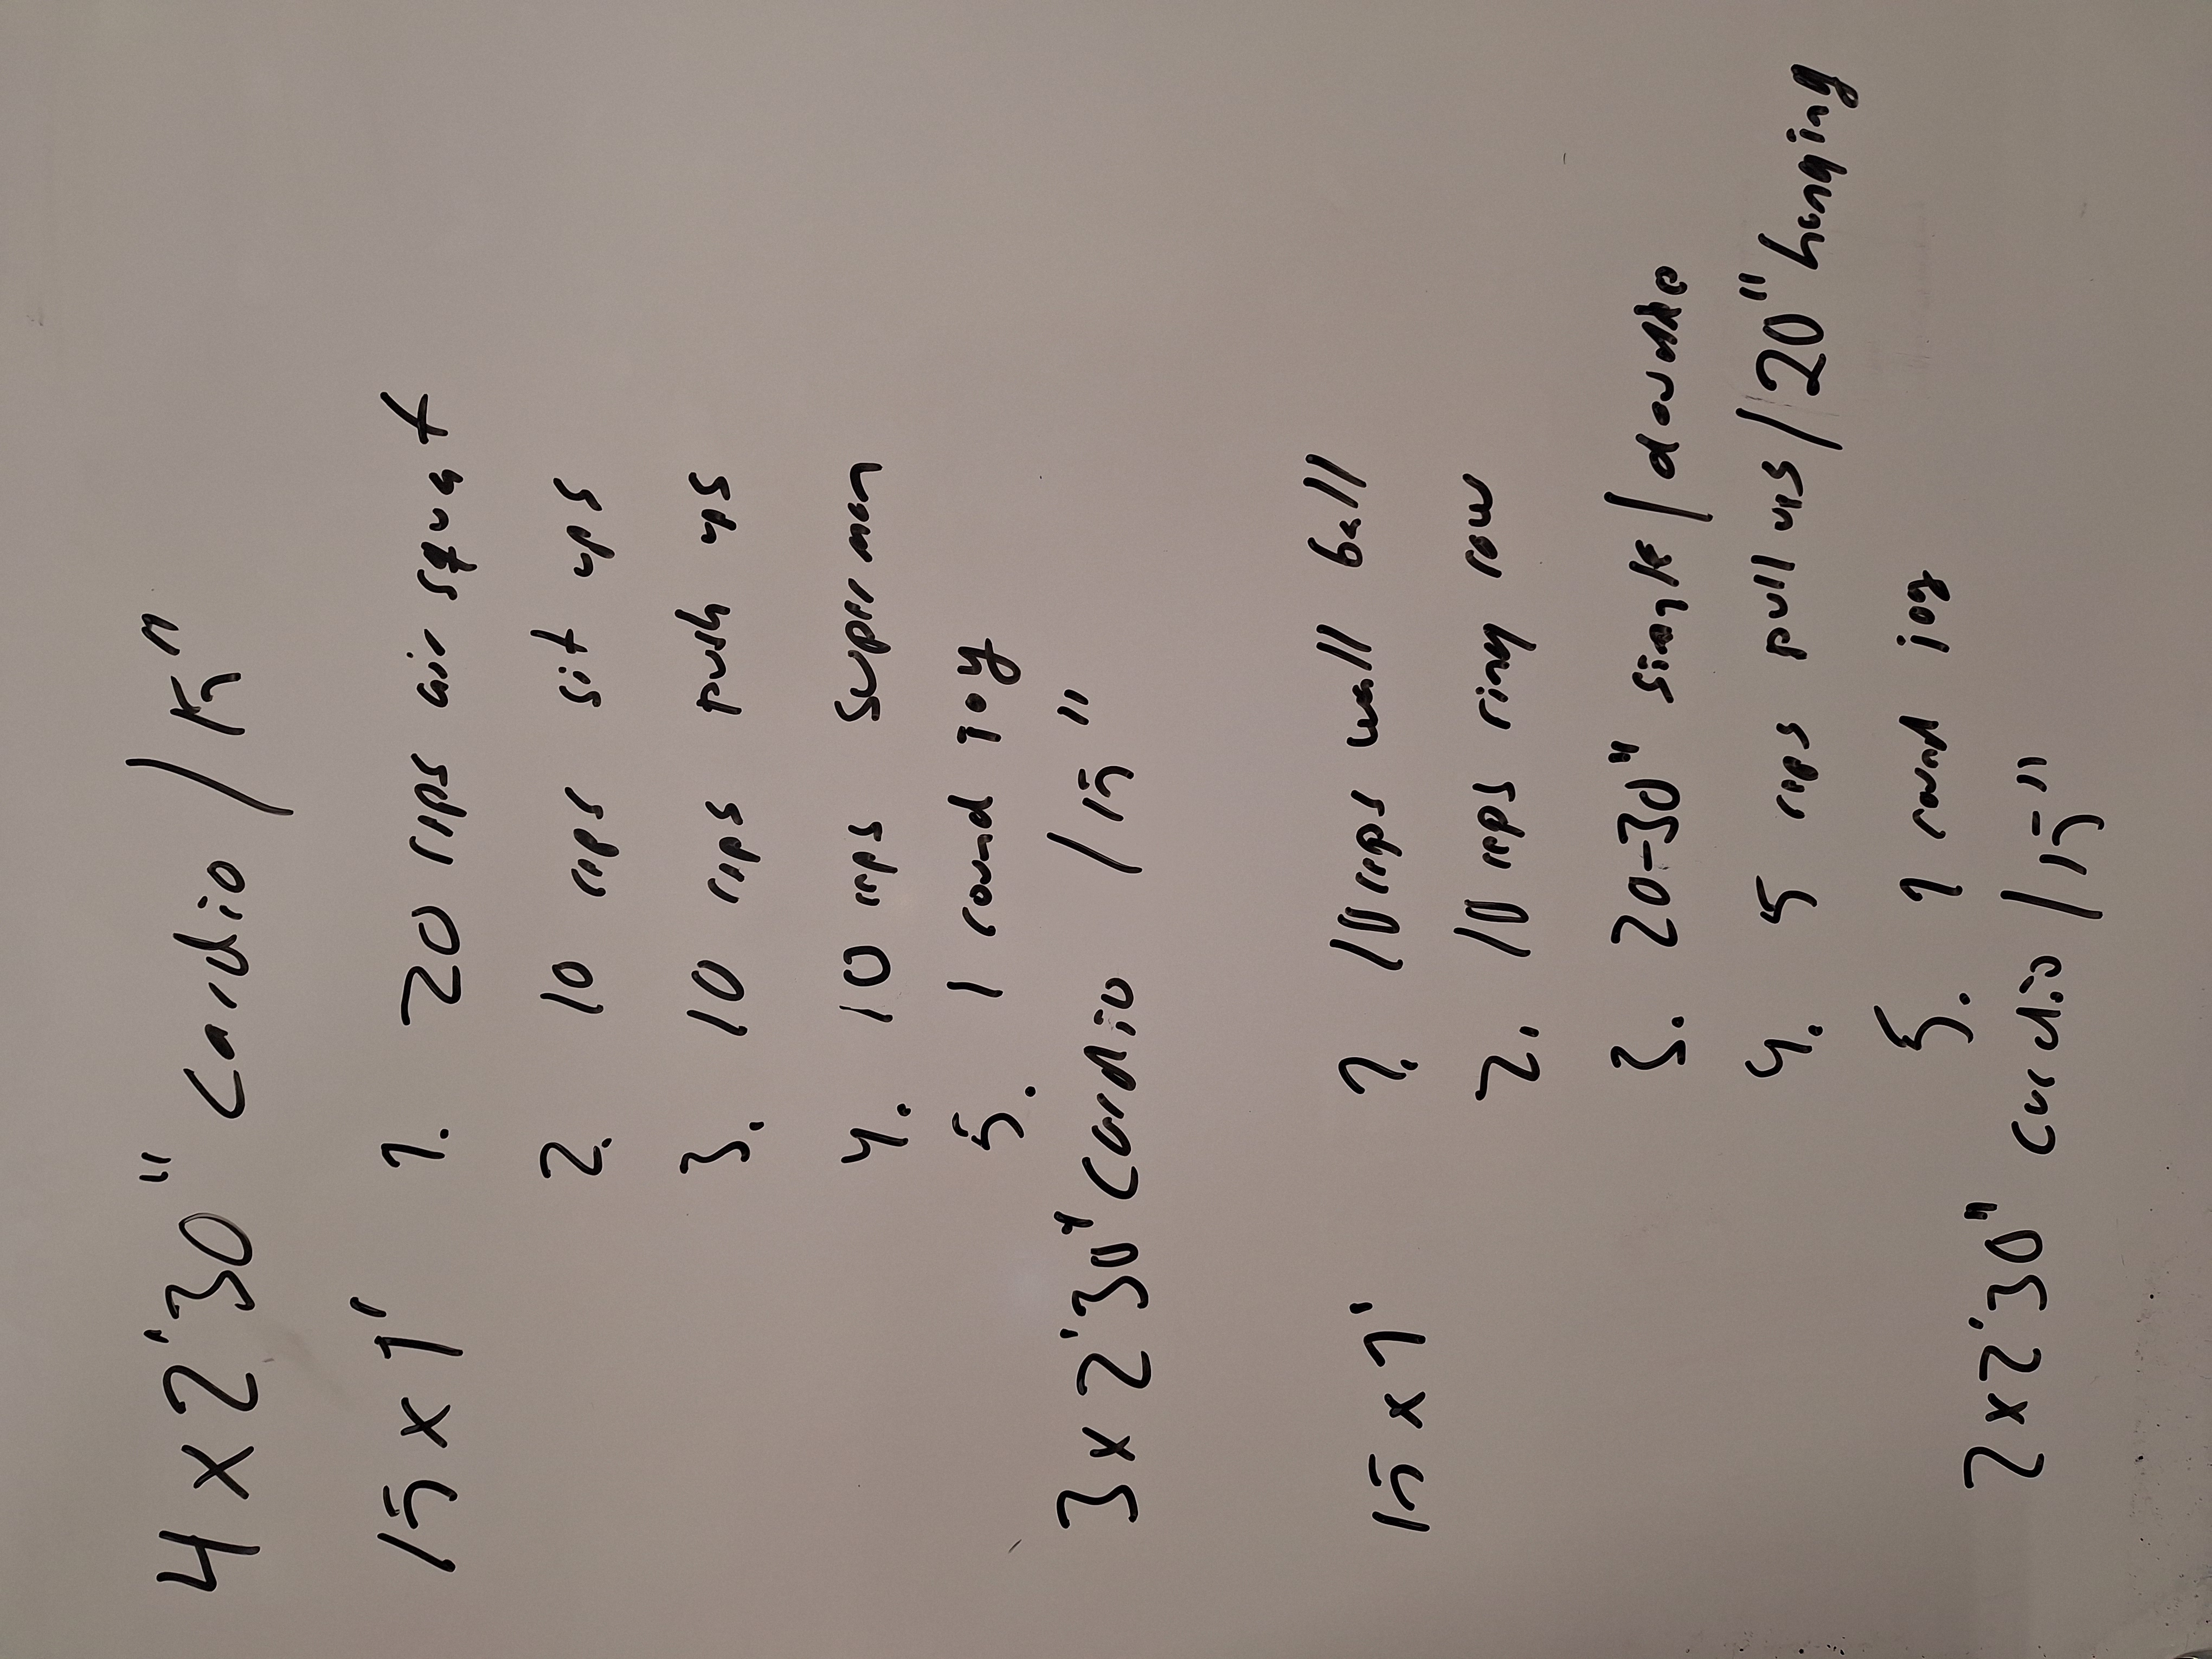 4 x 2'30" Cardio / 15"
15 x 1' 1. 20 reps air squat
2. 10 reps sit ups
3. 10 reps push ups
4. 10 reps superman
5. 1 round jog
3 x 2'30" Cardio / 15"
15 x 1' 1. 10 reps wall ball
2. 10 reps ring row
3. 20-30" single / double
4. 5 reps pull ups / 20" hanging
5. 1 round jog
2 x 2'30" cardio / 15"